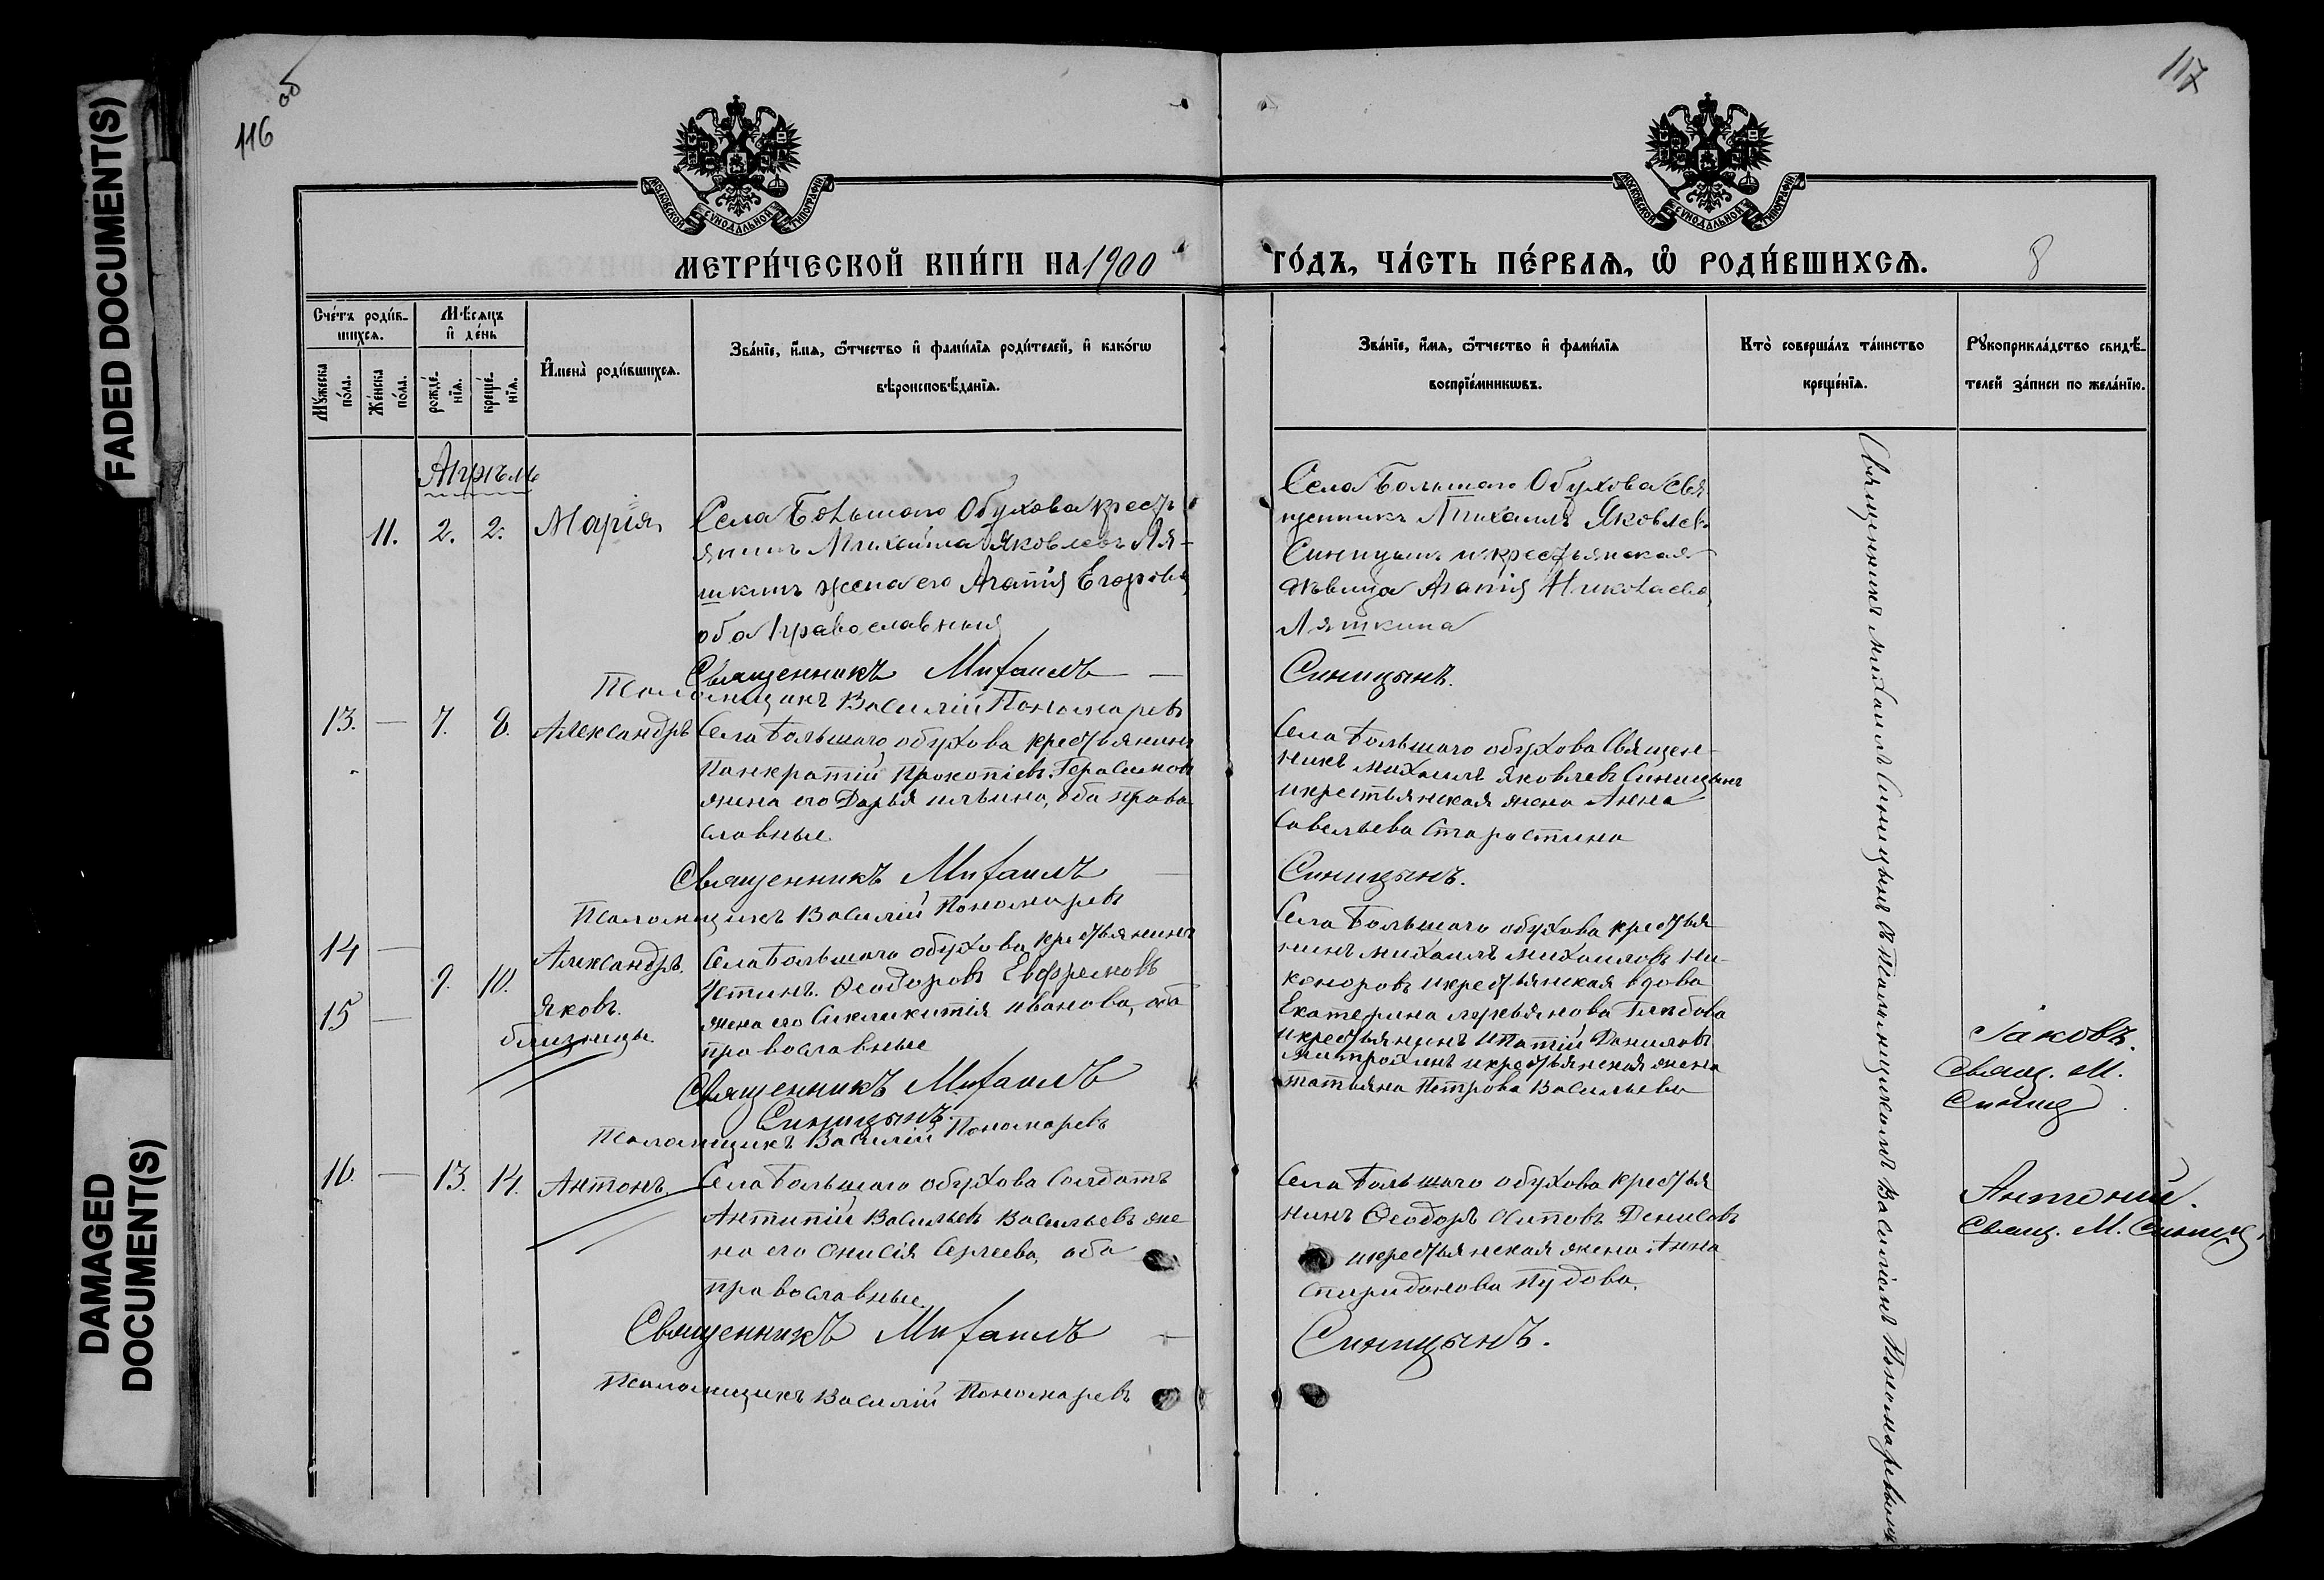 FADED DOCUMENT(S)
DAMAGED
DOCUMENT(S)
116 об
117
МОСКОВСКОЙ СУНОДАЛЬНОЙ ТИПОГРАФІИ
МОСКОВСКОЙ СУНОДАЛЬНОЙ ТИПОГРАФІИ
МЕТРИ́ЧЕСКОЙ КНИ́ГИ НА 1900
ГО́ДЪ, ЧА́СТЬ ПЕ́РВАЯ, Ѡ РОДИ́ВШИХСЯ.
8
Сче́тъ роди́в-
шихся.
Мꙋ́жеска
по́ла.
Же́нска
по́ла.
Мѣ́сяцъ
и де́нь
рожде́-
нїя.
креще́-
нїя.
И҆мена̀ роди́вшихся.
Зва́нїе, и҆́мя, ѻ҆́тчество и҆ фами́лїя роди́телей, и҆ како́гѡ
вѣроисповѣ́данїя.
Зва́нїе, и҆́мя, ѻ҆́тчество и҆ фами́лїя
воспрїе́мникѡвъ.
Кто̀ соверша́лъ та́инство
креще́нїя.
Рꙋкоприкла́дство свидѣ́-
телей за́писи по жела́нїю.
Апрѣль
11. 2. 2. Марія
Села Большаго Обухова кресть
янинъ Михаилъ Яковлевъ Ля-
шкинъ жена его Агапія Егорова
оба православныя
Священникъ Михаилъ —
Псаломщикъ Василій Пономаревъ
Села Большаго Обухова свя
щенникъ Михаилъ Яковлев.
Синицынъ и крестьянская
дѣвица Агапія Николаева
Ляшкина
Синицынъ.
13. — 7. 8. Александръ
Села Большаго обухова крестьянинъ
Панкратій Прокопіевъ Герасимовъ
жена его Дарья ильина, оба право
славные
Священникъ Михаилъ —
Псаломщикъ Василій Пономаревъ
Села Большаго обухова Священ-
никъ михаилъ яковлевъ Синицынъ
и крестьянская жена Анна
Савельева Старостина
Синицынъ.
14 — Александръ.
9. 10.
15 — Яковъ.
близнецы.
Села Большаго обухова крестьянинъ
Устинъ Ѳеодоровъ Евфремовъ
жена его Сикликитія иванова, оба
православные
Священникъ Михаилъ
Синицынъ.
Псаломщикъ Василій Пономаревъ
Села Большаго обухова крестья
нинъ михаилъ михаиловъ Ни-
каноровъ и крестьянская вдова
Екатерина лукьянова Глебова
и крестьянинъ ипатій Даниловъ
Митрохинъ и крестьянская жена
татьяна Петрова Васильева
Іаковъ.
Свящ. М.
Синиц
16. — 13. 14. Антонъ.
Села Большаго обухова Солдатъ
Антипій Васильевъ Васильевъ же
на его Онисія Сергеева, оба
православные.
Священникъ Михаилъ —
Псаломщикъ Василій Пономаревъ
Села Большаго обухова крестья
нинъ Ѳеодоръ Осиповъ Денисовъ
и крестьянская жена Анна
Спиридонова Пудова.
Синицынъ.
Антоній.
Свящ. М. Синиц.
Священникъ Михаилъ Синицынъ съ псаломщикомъ Василіемъ Пономаревымъ